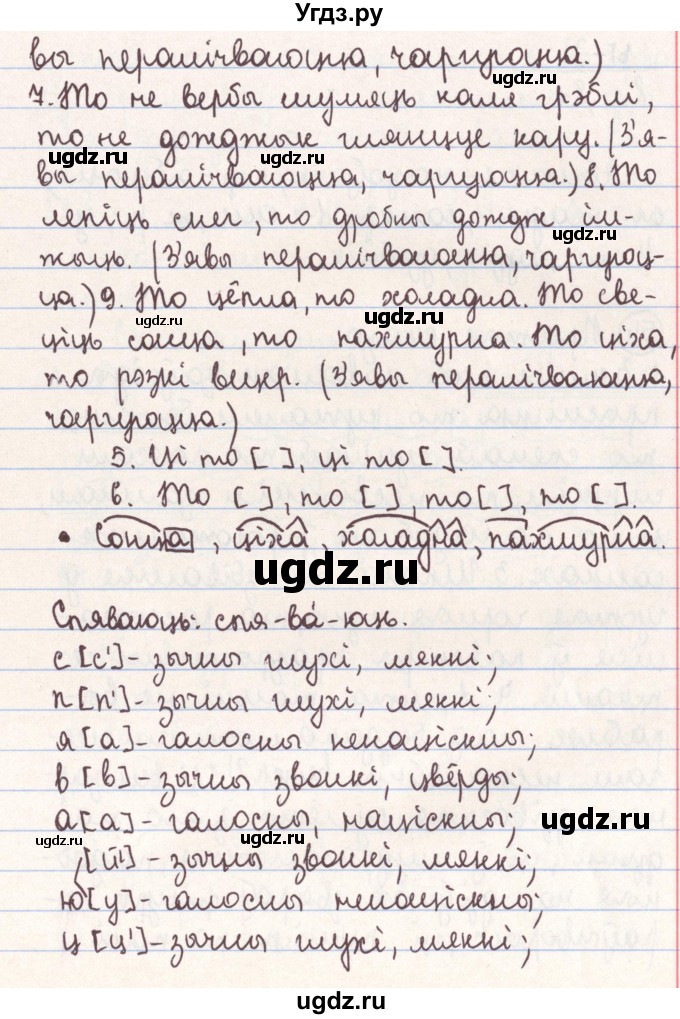 Угдз.ру
вы пералічваюцца, чаргуюцца.)
ugdz.ru
7. То не вербы шумяць каля грэблі,
то не дожджык глянцуе кару. (З'я-
ugdz.ru ugdz.ru
вы пералічваюцца, чаргуюцца.) 8. То
ugdz.ru
лепіць снег, то дробны дождж ім-
ugdz.ru
жыць. (З'явы пералічваюцца, чаргуюц-
ца.) 9. То цёпла, то холадна. То све-
ugdz.ru ugdz.ru
ціць сонца, то пахмурна. То ціха,
ugdz.ru
то рэзкі вецер. (З'явы пералічваюцца,
чаргуюцца.)
ugdz.ru
5. Ці то [ ], ці то [ ].
6. То [ ], то [ ], то [ ], то [ ].
• Сонца, ціха, холадна, пахмурна.
ugdz.ru
Спяваюць: спя-ва́-юць.
с [с'] - зычны глухі, мяккі;
п [п'] - зычны глухі, мяккі;
ugdz.ru
я [а] - галосны ненаціскны;
в [в] - зычны звонкі, цвёрды;
ugdz.ru
а [а] - галосны, націскны;
ugdz.ru
[й'] - зычны звонкі, мяккі;
ugdz.ru
ю [у] - галосны ненаціскны;
ц [ц'] - зычны глухі, мяккі;
ugdz.ru
ugdz.ru